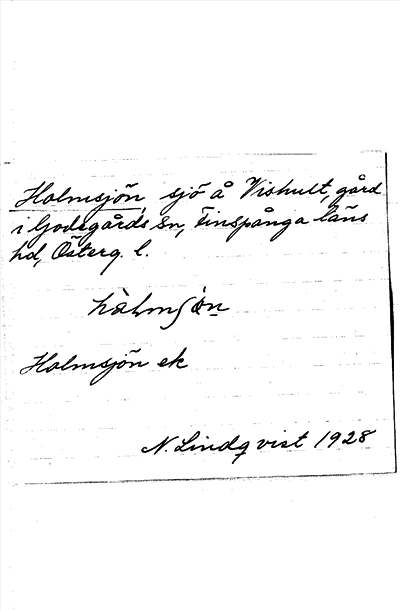 Holmsjön, sjö å Vishult, gård
i Godegårds sn, Finspånga läns
hd, Österg. l.
Holmsjön ek
N. Lindqvist 1928